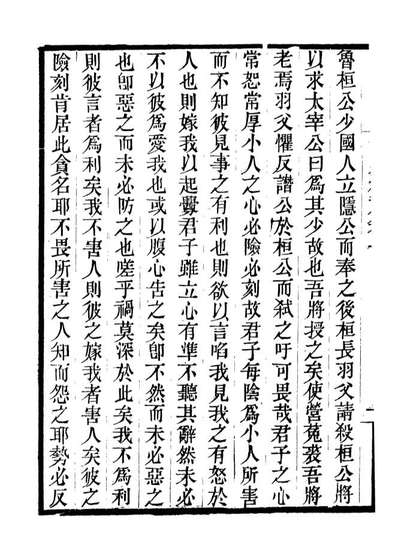 魯桓公少國人立隱公而奉之後桓長羽父請殺桓公將
以求太宰公曰爲其少故也吾將授之矣使營菟裘吾將
老焉羽父懼反譖公於桓公而弑之吁可畏哉君子之心
常恕常厚小人之心必險必刻故君子每陰爲小人所害
而不知彼見事之有利也則欲以言啗我見我之有怒於
人也則嫁我以起釁君子雖立心有準不聽其辭然未必
不以彼爲愛我也或以腹心告之矣卽不然而未必惡之
也卽惡之而未必防之也嗟乎禍莫深於此矣我不爲利
則彼言者爲利矣我不害人則彼之嫁我者害人矣彼之
險刻肯居此貪名耶不畏所害之人知而怨之耶勢必反